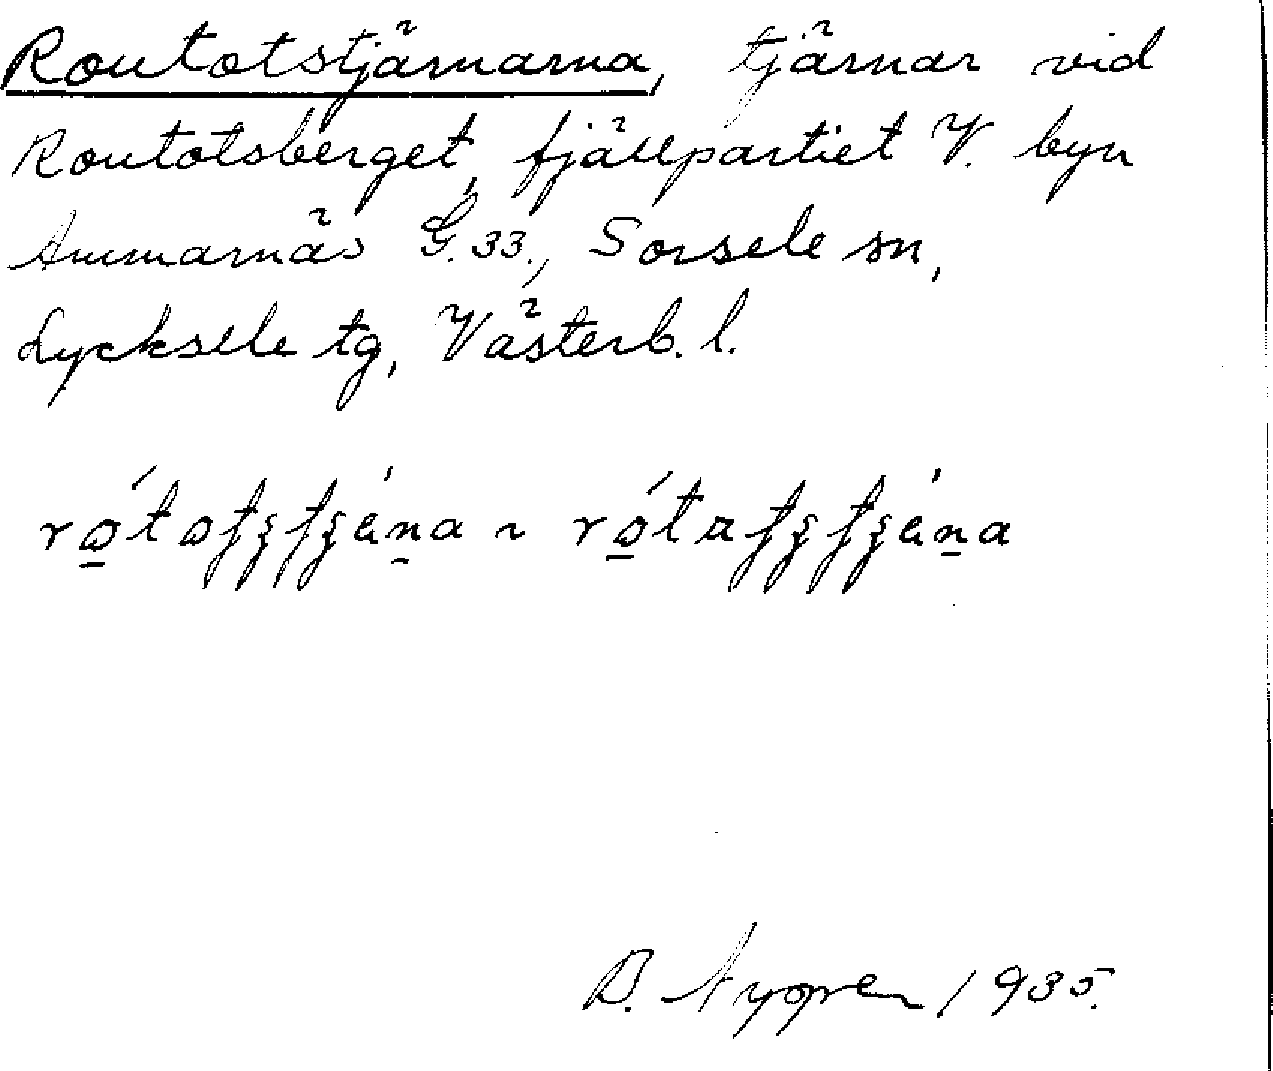 Routotstjärnarna, tjärnar vid
Routotsberget, fjällpartiet V. byn
Ammarnäs G. 33., Sorsele sn,
Lycksele tg, Västerb. l.
Nygren 1935.